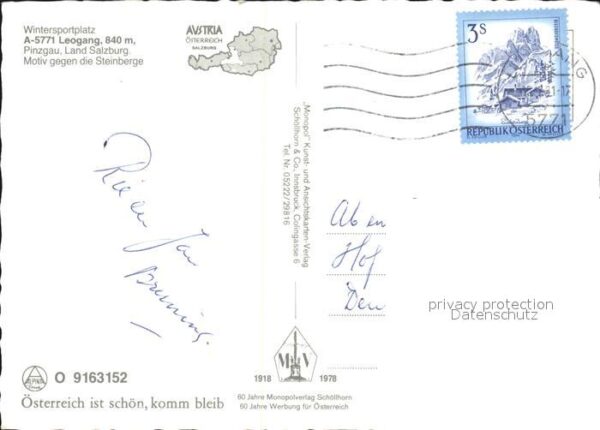 Wintersportplatz
A-5771 Leogang, 840 m,
Pinzgau, Land Salzburg
Motiv gegen die Steinberge
AUSTRIA
ÖSTERREICH
SALZBURG
3 S
REPUBLIK ÖSTERREICH
5771
„Monopol" Kunst- und Ansichtskarten-Verlag
Schöllhorn & Co., Innsbruck, Colingasse 6
Tel. Nr. 05222/29816
Jan
Hof
privacy protection
Datenschutz
M V
1918 1978
60 Jahre Monopolverlag Schöllhorn
60 Jahre Werbung für Österreich
O 9163152
Österreich ist schön, komm bleib